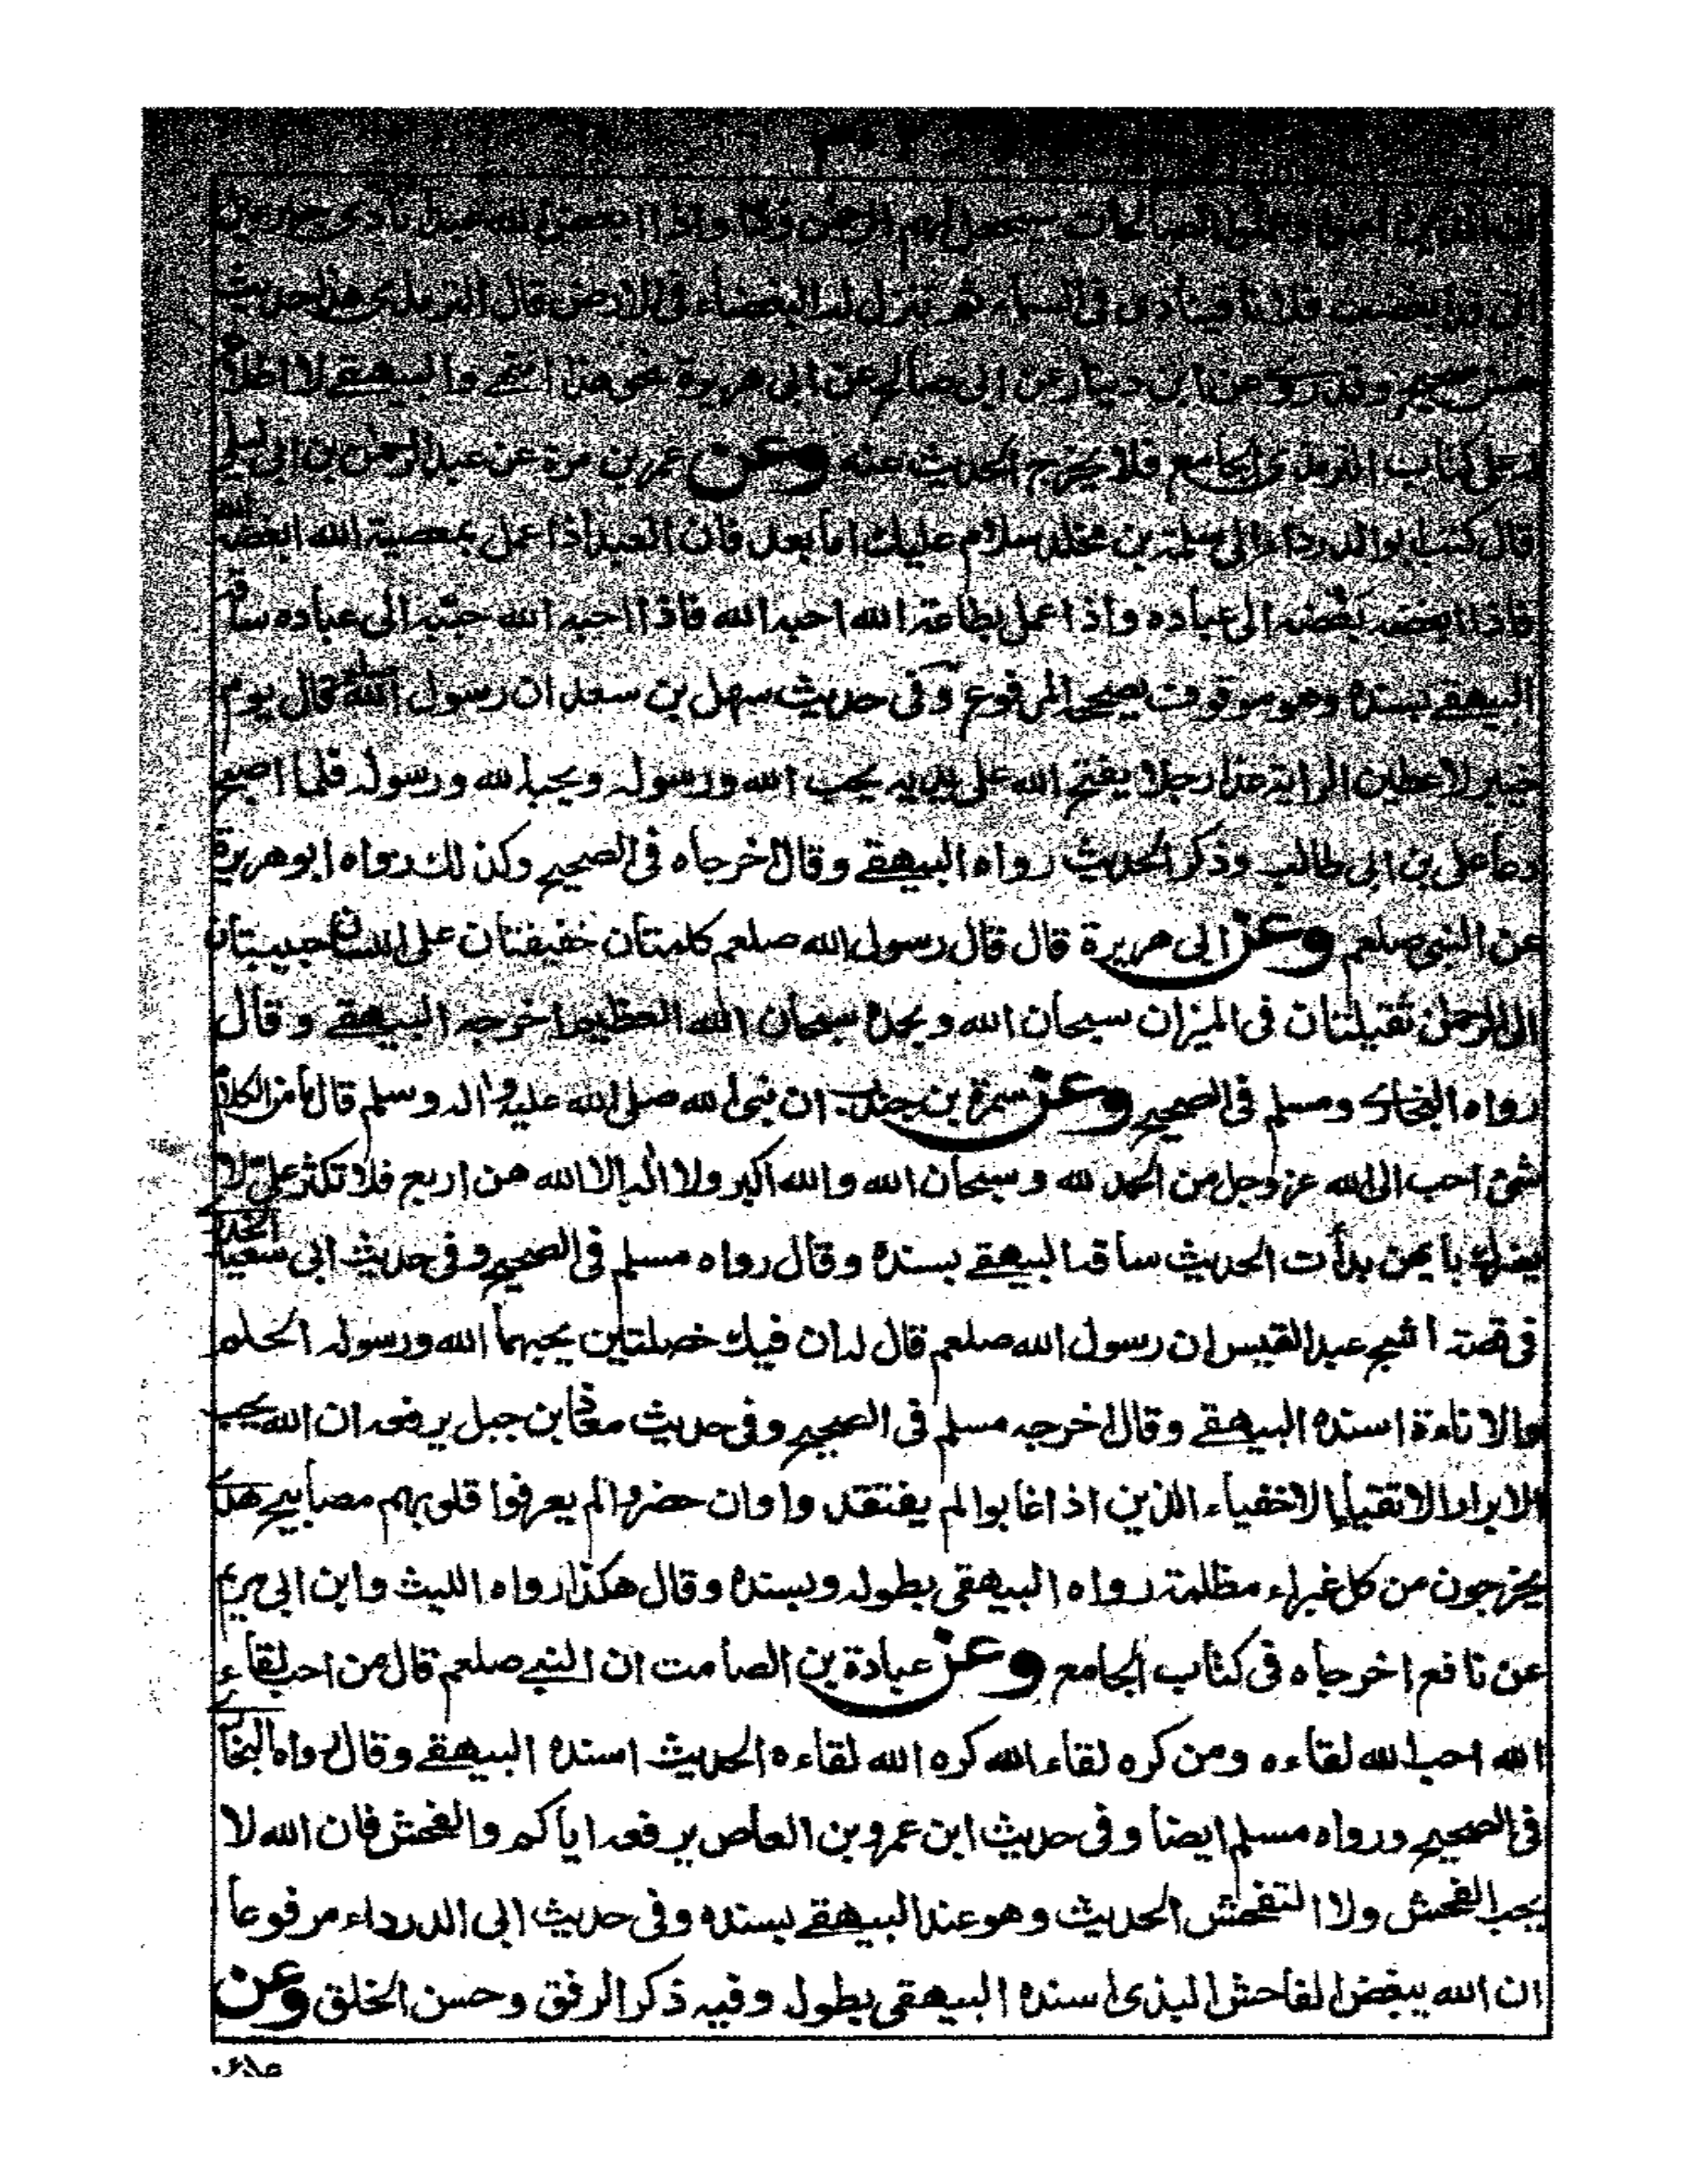 ان الذين امنوا وعملوا الصالحات سيجعل لهم الرحمن ودا واذا ابغض الله عبدا نادى جبرئيل
انى قد ابغضت فلانا فينادى فى السماء ثم تنزل له البغضاء فى الارض قال الترمذى هذا حديث
حسن صحيح وقد روى عن ابن دينار عن ابى صالح عن ابى هريرة نحو هذا انتهى والبيهقے لا اطلاع
له على كتاب الترمذى الجامع فلا يخرج الحديث عنه وعن عمرو بن مرة عن عبد الرحمن بن ابى ليلے
قال كتب ابو الدرداء الى سلمة بن مخلد سلام عليك اما بعد فان العبد اذا عمل بمعصية الله ابغضه الله
فاذا ابغضه بغضه الى عباده واذا عمل بطاعة الله احبه الله فاذا احبه الله حببه الى عباده ساقه
البيهقے بسنده وهو موقوف يصحح المرفوع وفى حديث سهل بن سعد ان رسول الله صلعم قال يوم
خيبر لاعطين الراية غدا رجلا يفتح الله على يديه يحب الله ورسوله ويحبه الله ورسوله فلما اصبح
دعا على بن ابى طالب وذكر الحديث رواه البيهقے وقال اخرجاه فى الصحيح وكذلك رواه ابو هريرة
عن النبى صلعم وعن ابى هريرة قال قال رسول الله صلعم كلمتان خفيفتان على اللسان حبيبتان
الى الرحمن ثقيلتان فى الميزان سبحان الله وبحمده سبحان الله العظيم اخرجه البيهقے وقال
رواه البخارى ومسلم فى الصحيح وعن سمرة بن جندب ان نبى الله صلى الله عليه واله وسلم قال ما من الكلام
شئ احب الى الله عز وجل من الحمد لله وسبحان الله والله اكبر ولا اله الا الله هن اربع فلا تكثر على لا
يضرك بايهن بدأت الحديث ساقه البيهقے بسنده وقال رواه مسلم فى الصحيح وفى حديث ابى سعيد الخدرى
فى قصة اشج عبد القيس ان رسول الله صلعم قال له ان فيك خصلتين يحبهما الله ورسوله الحلم
والاناءة اسنده البيهقے وقال اخرجه مسلم فى الصحيح وفى حديث معاذ ابن جبل يرفعه ان الله يحب
الابرار الاتقياء الاخفياء الذين اذا غابوا لم يفتقدوا وان حضروا لم يعرفوا قلوبهم مصابيح هدى
يخرجون من كل غبراء مظلمة رواه البيهقى بطوله وبسنده وقال هكذا رواه الليث وابن ابى مريم
عن نافع اخرجاه فى كتاب الجامع وعن عبادة بن الصامت ان النبے صلعم قال من احب لقاء
الله احب الله لقاءه ومن كره لقاء الله كره الله لقاءه الحديث اسنده البيهقے وقال رواه البخارى
فى الصحيح ورواه مسلم ايضا وفى حديث ابن عمرو بن العاص يرفعه اياكم والفحش فان الله لا
يحب الفحش ولا التفحش الحديث وهو عند البيهقے بسنده وفى حديث ابى الدرداء مرفوعا
ان الله يبغض الفاحش البذى اسنده البيهقى بطوله وفيه ذكر الرفق وحسن الخلق وعن